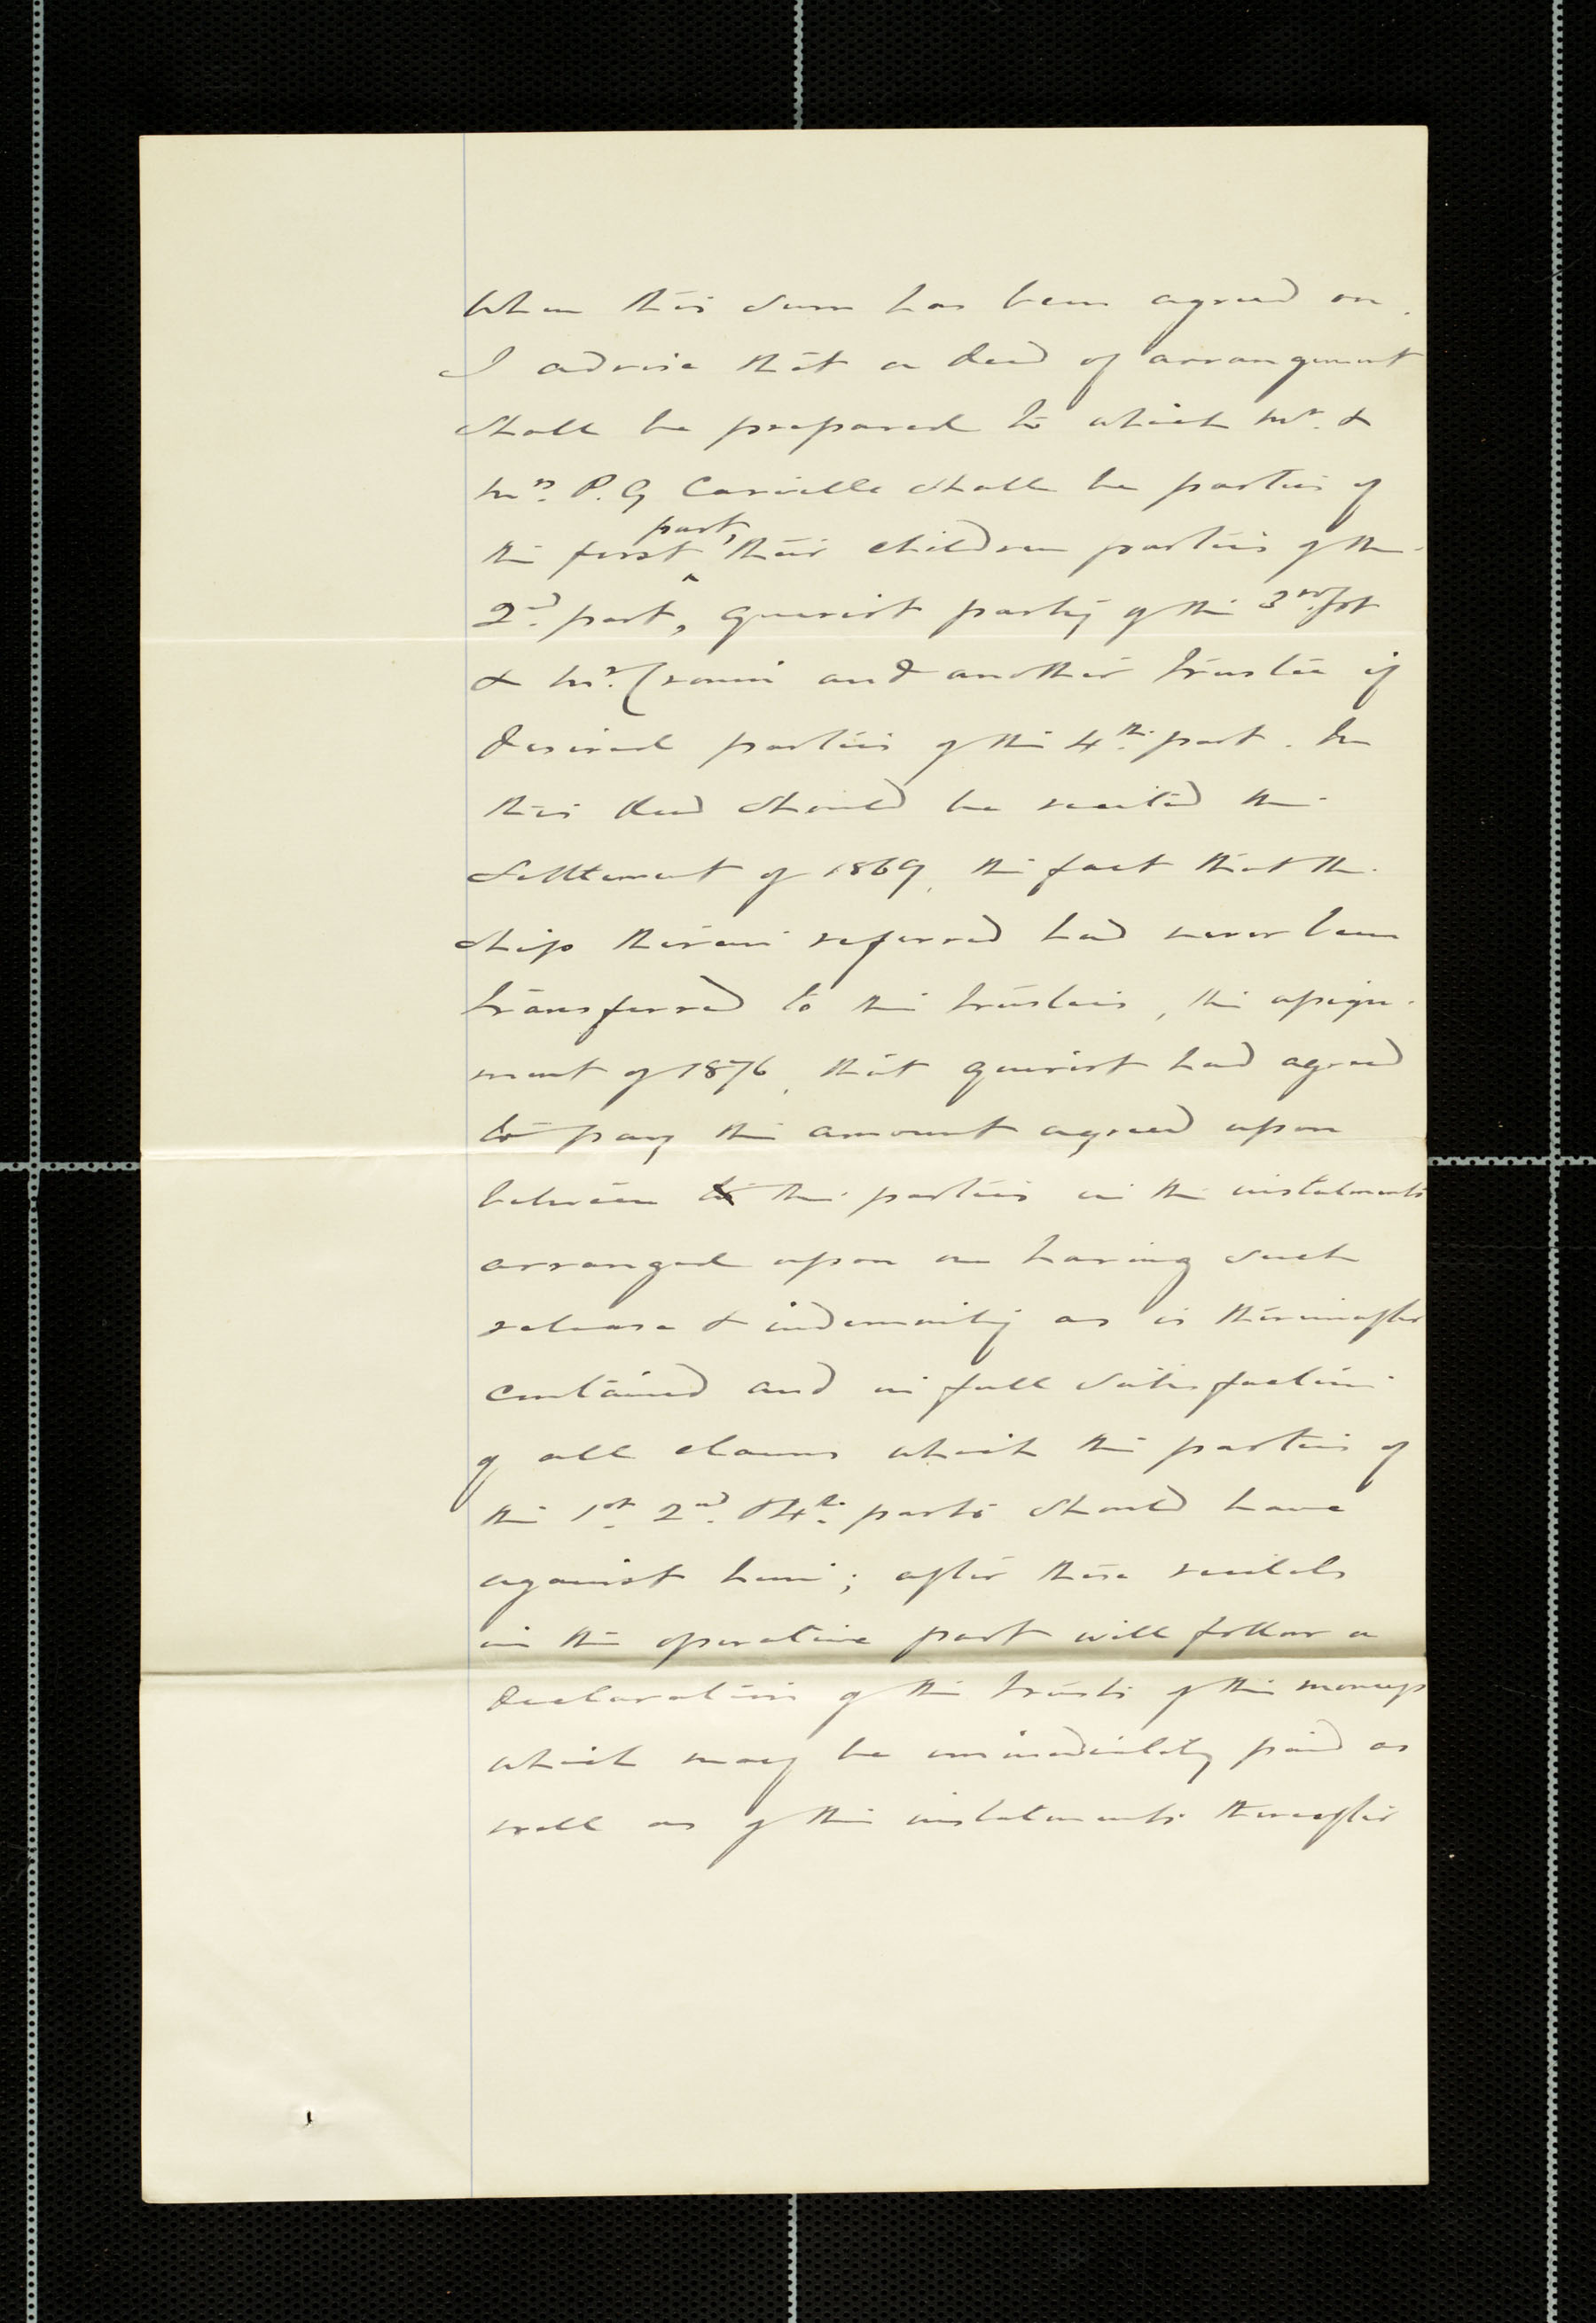 When this sum has been agreed on.
I advise that a deed of arrangement
shall be prepared to which Mr. &
Mrs. P. G Carvill shall be parties of
the first part, their children parties of the
2nd. part, querist party of the 3rd pt
& Mr. Cronin and another trustee if
desired parties of the 4th. part. In
this deed should be recited the
Settlement of 1869, the fact that the
ship therein referred had never been
transferred to the trustees, the assign-
ment of 1876, that querist had agreed
to pay the amount agreed upon
between the parties in the instalments
arranged upon on having such
release & indemnity as is thereinafter
contained and in full satisfaction
of all claims which the parties of
the 1st. 2nd. & 4th. parts should have
against him; after these recitals
in the operative part will follow a
declaration of the trusts of the moneys
which may be immediately paid as
well as of the instalments thereafter